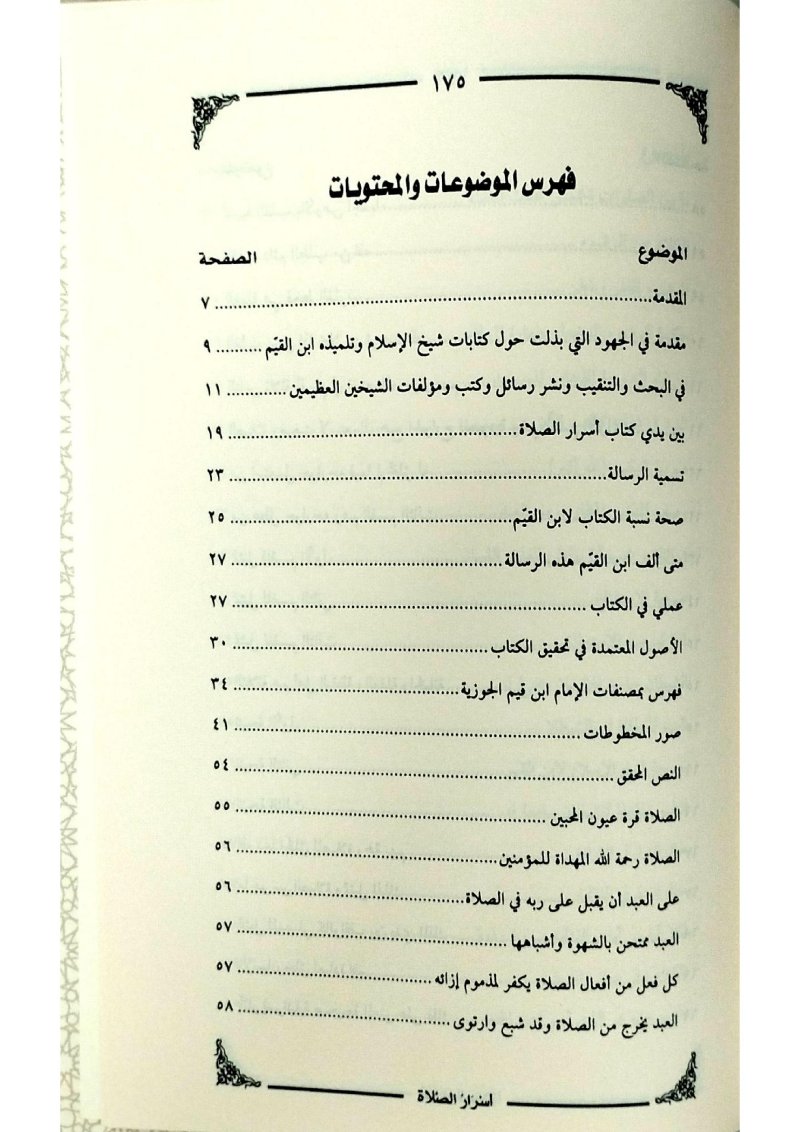 ١٧٥
فهرس الموضوعات والمحتويات
الموضوع الصفحة
المقدمة ٧
مقدمة في الجهود التي بذلت حول كتابات شيخ الإسلام وتلميذه ابن القيّم ٩
في البحث والتنقيب ونشر رسائل وكتب ومؤلفات الشيخين العظيمين ١١
بين يدي كتاب أسرار الصلاة ١٩
تسمية الرسالة ٢٣
صحة نسبة الكتاب لابن القيّم ٢٥
متى ألف ابن القيّم هذه الرسالة ٢٧
عملي في الكتاب ٢٧
الأصول المعتمدة في تحقيق الكتاب ٣٠
فهرس بمصنفات الإمام ابن قيم الجوزية ٣٤
صور المخطوطات ٤١
النص المحقق ٥٤
الصلاة قرة عيون المحبين ٥٥
الصلاة رحمة الله المهداة للمؤمنين ٥٦
على العبد أن يقبل على ربه في الصلاة ٥٦
العبد ممتحن بالشهوة وأشباهها ٥٧
كل فعل من أفعال الصلاة يكفر لمذموم إزائه ٥٧
العبد يخرج من الصلاة وقد شبع وارتوى ٥٨
أسرار الصلاة